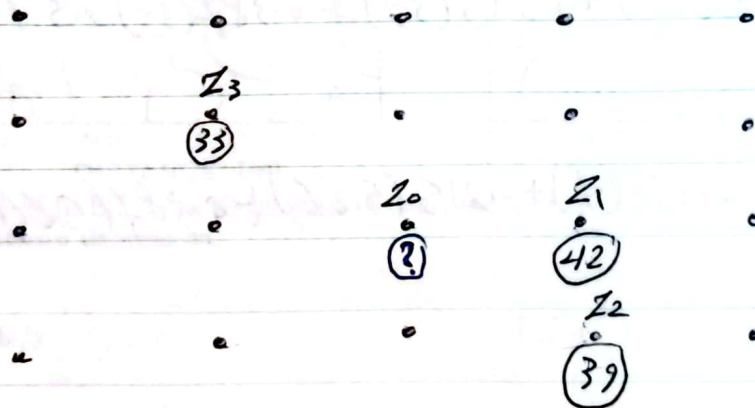 Z3
33
Z0 Z1
? 42
Z2
39